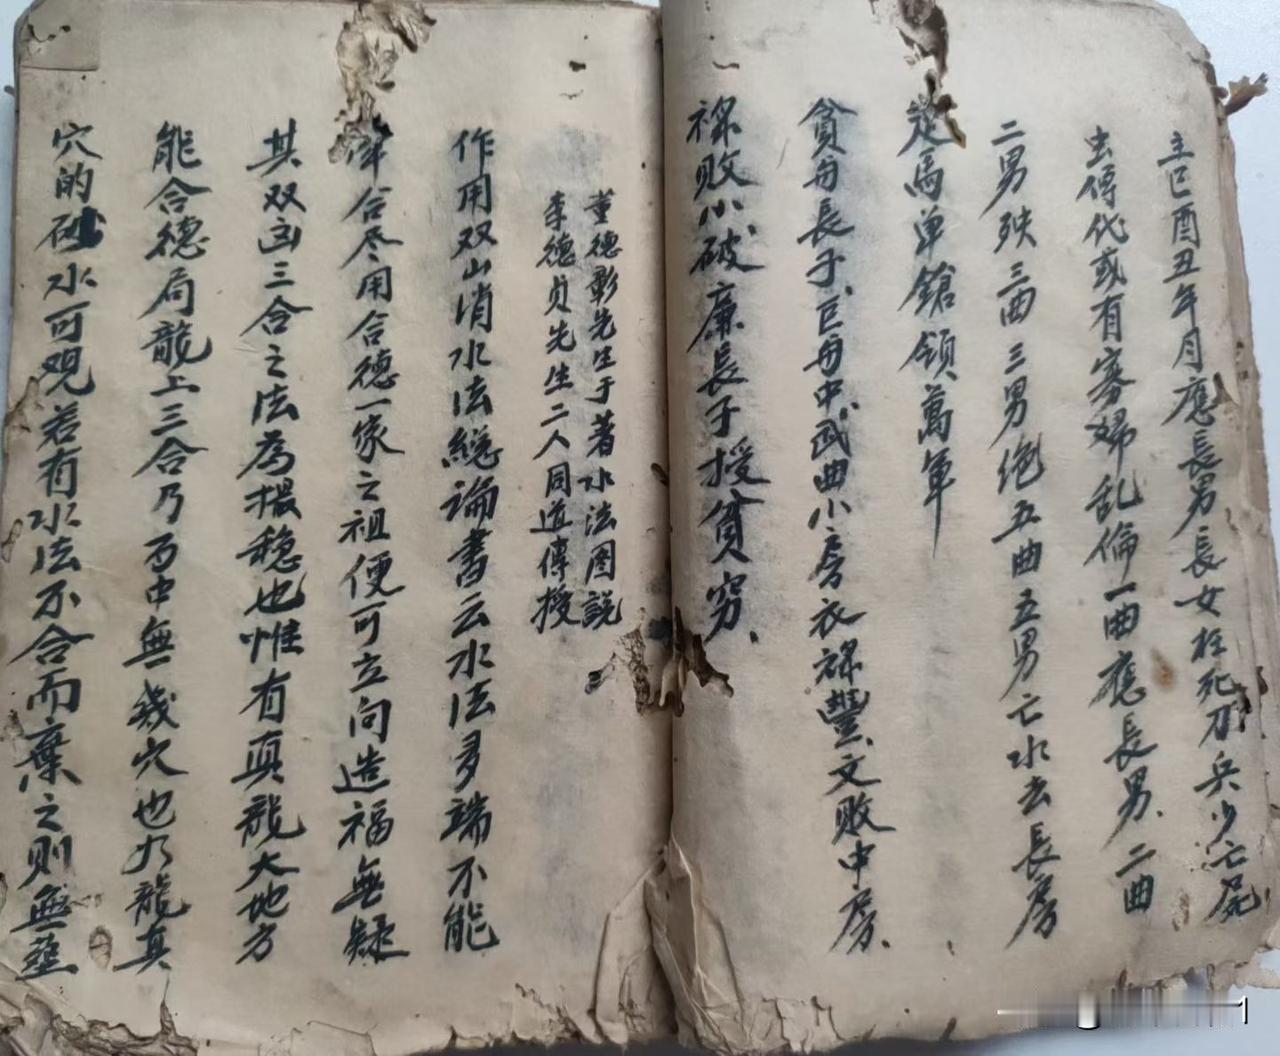 主巳酉丑年月應長男長女枉死刀兵少亡屍
虫傳代或有寡婦乱倫一曲應長男二曲
二男殃三曲三男绝五曲五男亡水去長房
走馬单鎗領萬軍
貪舟長子巨舟中武曲小房衣禄豐文敗中房
禄敗小破廉長子授貧穷
董德彰先生于著水法图説
李德贞先生二人同道傳授
作用双山消水法総論書云水法多端不能
合尽用合德一家之祖便可立向造福無疑
其双函三合之法為撮稳也惟有真龍大地方
能合德局龍上三合乃百中無幾穴也九龍真
穴的砂水可观若有水法不合而棄之则無